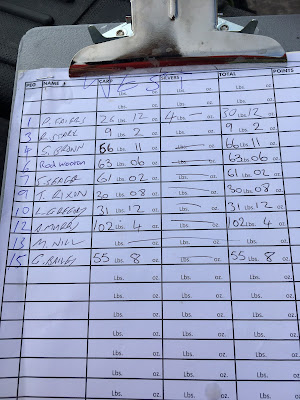 WEST
PEG NAME CARP SILVERS TOTAL POINTS
Lbs. oz. Lbs. oz. Lbs. oz.
1 26 Lbs. 12 oz. 4 Lbs. oz. 30 Lbs. 12 oz.
3 9 Lbs. 2 oz. Lbs. oz. 9 Lbs. 2 oz.
4 G. BROWN 66 Lbs. 11 oz. Lbs. oz. 66 Lbs. 11 oz.
6 Rod wooton 63 Lbs. 06 oz. Lbs. oz. 63 Lbs. 06 oz.
61 Lbs. 02 oz. Lbs. oz. 61 Lbs. 02 oz.
9 T. RIXON Lbs. 08 oz. Lbs. oz. 30 Lbs. 08 oz.
10 L. GREGORY 31 Lbs. 12 oz. Lbs. oz. 31 Lbs. 12 oz.
12 102 Lbs. 4 oz. Lbs. oz. 102 Lbs. 4 oz.
13 M. NILL Lbs. oz. Lbs. oz. Lbs. oz.
15 G. BAILEY 55 Lbs. 8 oz. Lbs. oz. 55 Lbs. 8 oz.
Lbs. oz. Lbs. oz. Lbs. oz.
Lbs. oz. Lbs. oz. Lbs. oz.
Lbs. oz. Lbs. oz. Lbs. oz.
Lbs. oz. Lbs. oz. Lbs. oz.
Lbs. oz. Lbs. oz. Lbs. oz.
Lbs. oz. Lbs. oz. Lbs. oz.
Lbs. oz. Lbs. oz. Lbs. oz.